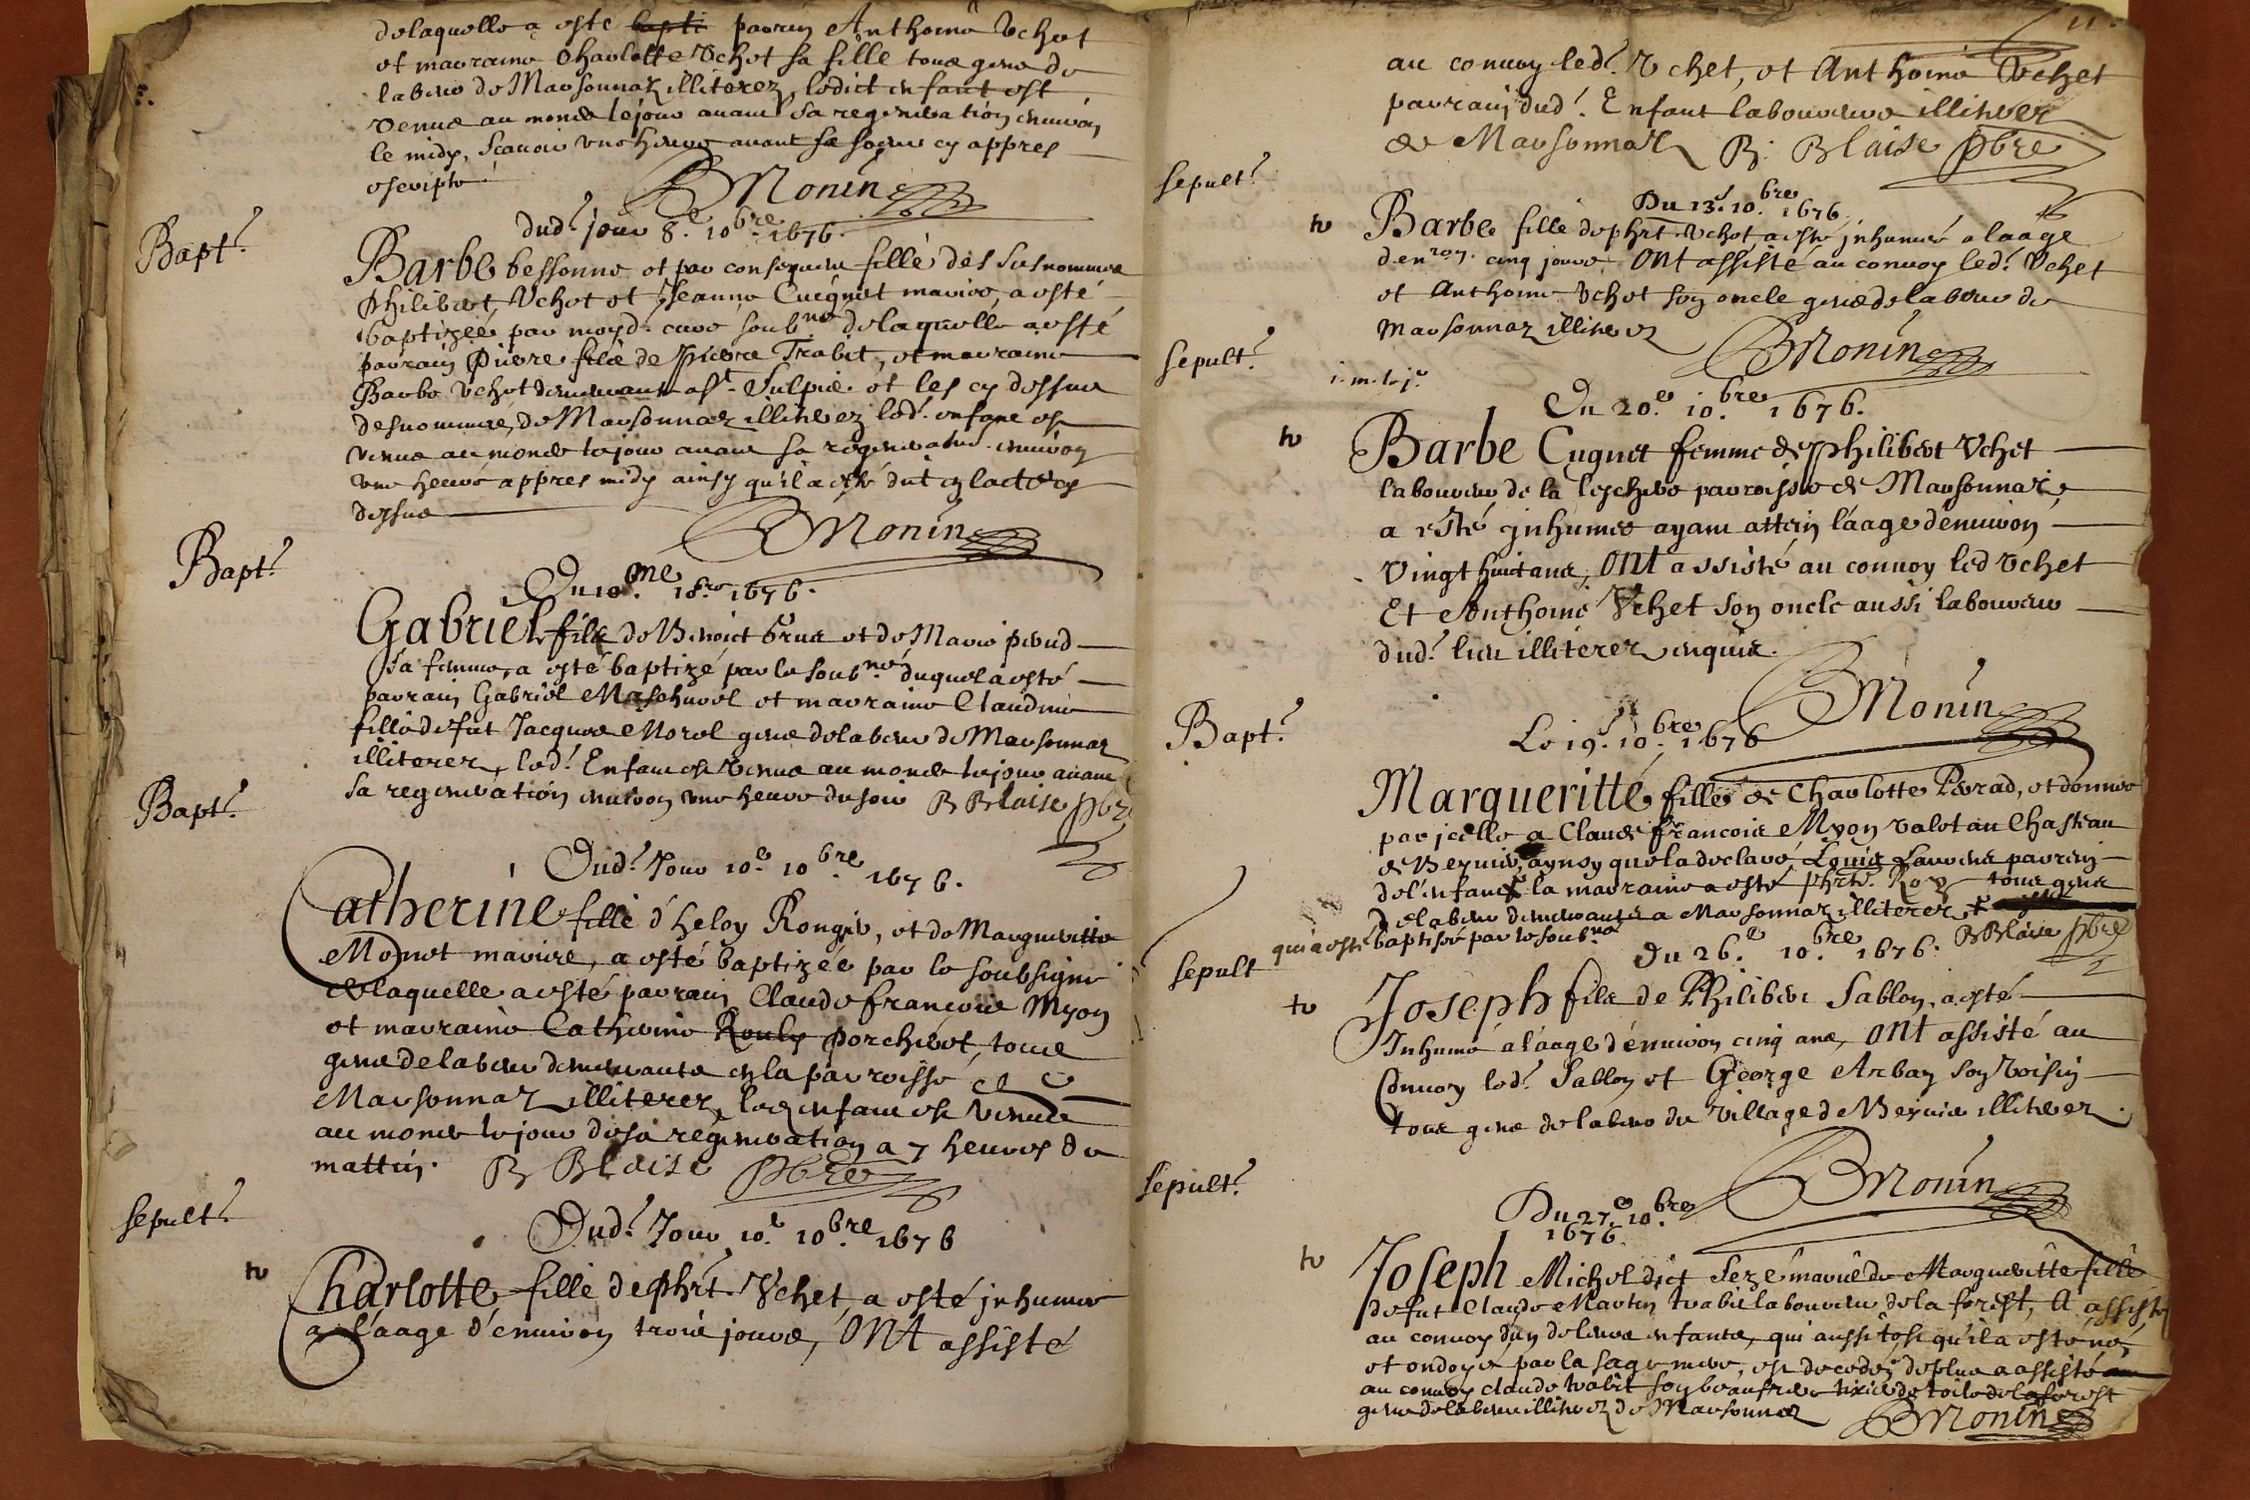 delaquelle a esté bapti parrin Anthoine Vchet
et marraine Charlotte Vchet sa fille tous gens de
labeur de Marsonnaz illiterez, ledict enfant est
venue au monde le jour avant sa regeneration environ
le midy, scavoir une heure avant sa soeur cy appres
escripte
BMonin
Bapt.
dud. jour 8.e 10.bre 1676.
Barbe bessonne et par consequent fille des susnommes
Philibert Vchet et Jeanne Cucgnet maries, a esté
baptizée par moyd. curé soub.né de laquelle a esté
parrain Pierre fils de Pierre Trabit, et marraine
Barbe Vchet demeurant a St. Sulpie et les cy dessus
desnommes, de Marsonnaz illiterez led. enfant est
venue au monde le jour avant sa regeneration environ
une heure appres midy ainsy qu'il a esté dit en l'acte cy
dessus
BMonin
Bapt.
Du 10.me 10.bre 1676.
Gabriel fils de Benoict Brus et de Marie perud
sa femme, a esté baptizé par le soub.né duquel a esté
parrain Gabriel Maschurel et marraine Claudine
fille de fut Jacques Morel gens de labeur de Marsonnaz
illiterez, led. Enfant est venus au monde le jour avant
sa regeneration environ une heure du soir B Blaise pbre
Bapt.
Dud. Jour 10.e 10.bre 1676.
Catherine fille d'heloy Rongier, et de Margueritte
Monet maries, a esté baptizée par le soubsigné
de laquelle a esté parrain Claude francois Myon
et marraine Catherine Rouly porcheret, tous
gens de labeur demeurants en la parroisse de
Marsonnaz illiterez, led enfant est venue
au monde le jour de sa regeneration a 7 heures du
mattin. B Blaise pbre
sepult.
Dud. Jour 10.e 10.bre 1676
Charlotte fille de phrt. Vchet, a esté inhumee
a l'aage d'environ trois jours, Ont assisté
11.
au convoy led. Vchet, et Anthoine Vchet
parrain dud. Enfant laboureurs illiterez
de Marsonnaz B. Blaise pbre
sepult.
Du 13.e 10.bre 1676
Barbe fille de phrt Vchet a esté inhumée a l'aage
d'env.ron cinq jours, Ont assisté au convoy led. Vchet
et Anthoine Vchet son oncle gens de labeur de
Marsonnaz illiterez
BMonin
sepult.
Du 20.e 10.bre 1676.
Barbe Cugnet femme de Philibert Vchet
laboureur de la leschere parroisse de Marsonnaz,
a esté inhumee ayant attein l'aage d'environ
vingt huit ans, Ont assisté au convoy led Vchet
Et Anthoine Vchet son oncle aussi laboureur
dud. lieu illiterez enquis.
BMonin
Bapt.
Le 19.e 10.bre 1676
Margueritte fille de Charlotte Perrad, et donnee
par icelle a Claude francois Myon valet au Chasteau
de Beyvier, aynsy que la declaré Louis Laurens parrein
de l'enfant la marraine a esté phrte. Roy tous gens
de labeur demeurants a Marsonnaz illiterez
qui a esté baptisée par le soub.né B Blaise pbre
sepult
Du 26.e 10.bre 1676.
Joseph fils de Philibert Sablon, a esté
Inhumé a l'aage d'environ cinq ans, Ont assisté au
Convoy led. Sablon et George Arban son voisin
tous gens de labeur du village de Beyvier illiterez.
BMonin
sepult.
Du 27.e 10.bre
1676.
Joseph Michel dict Sezé marié de Margueritte fille
de fut Claude Martin trabit laboureur de la forest, A assisté
au convoy d'un de leurs enfants, qui aussi tost qu'il a esté né,
et ondoyé par la sage mere, est decedé, de plus a assisté au
au convoy Claude trabit son beaufrere tixier de toile de la forest
gens de labeur illiterez de Marsonnaz BMonin